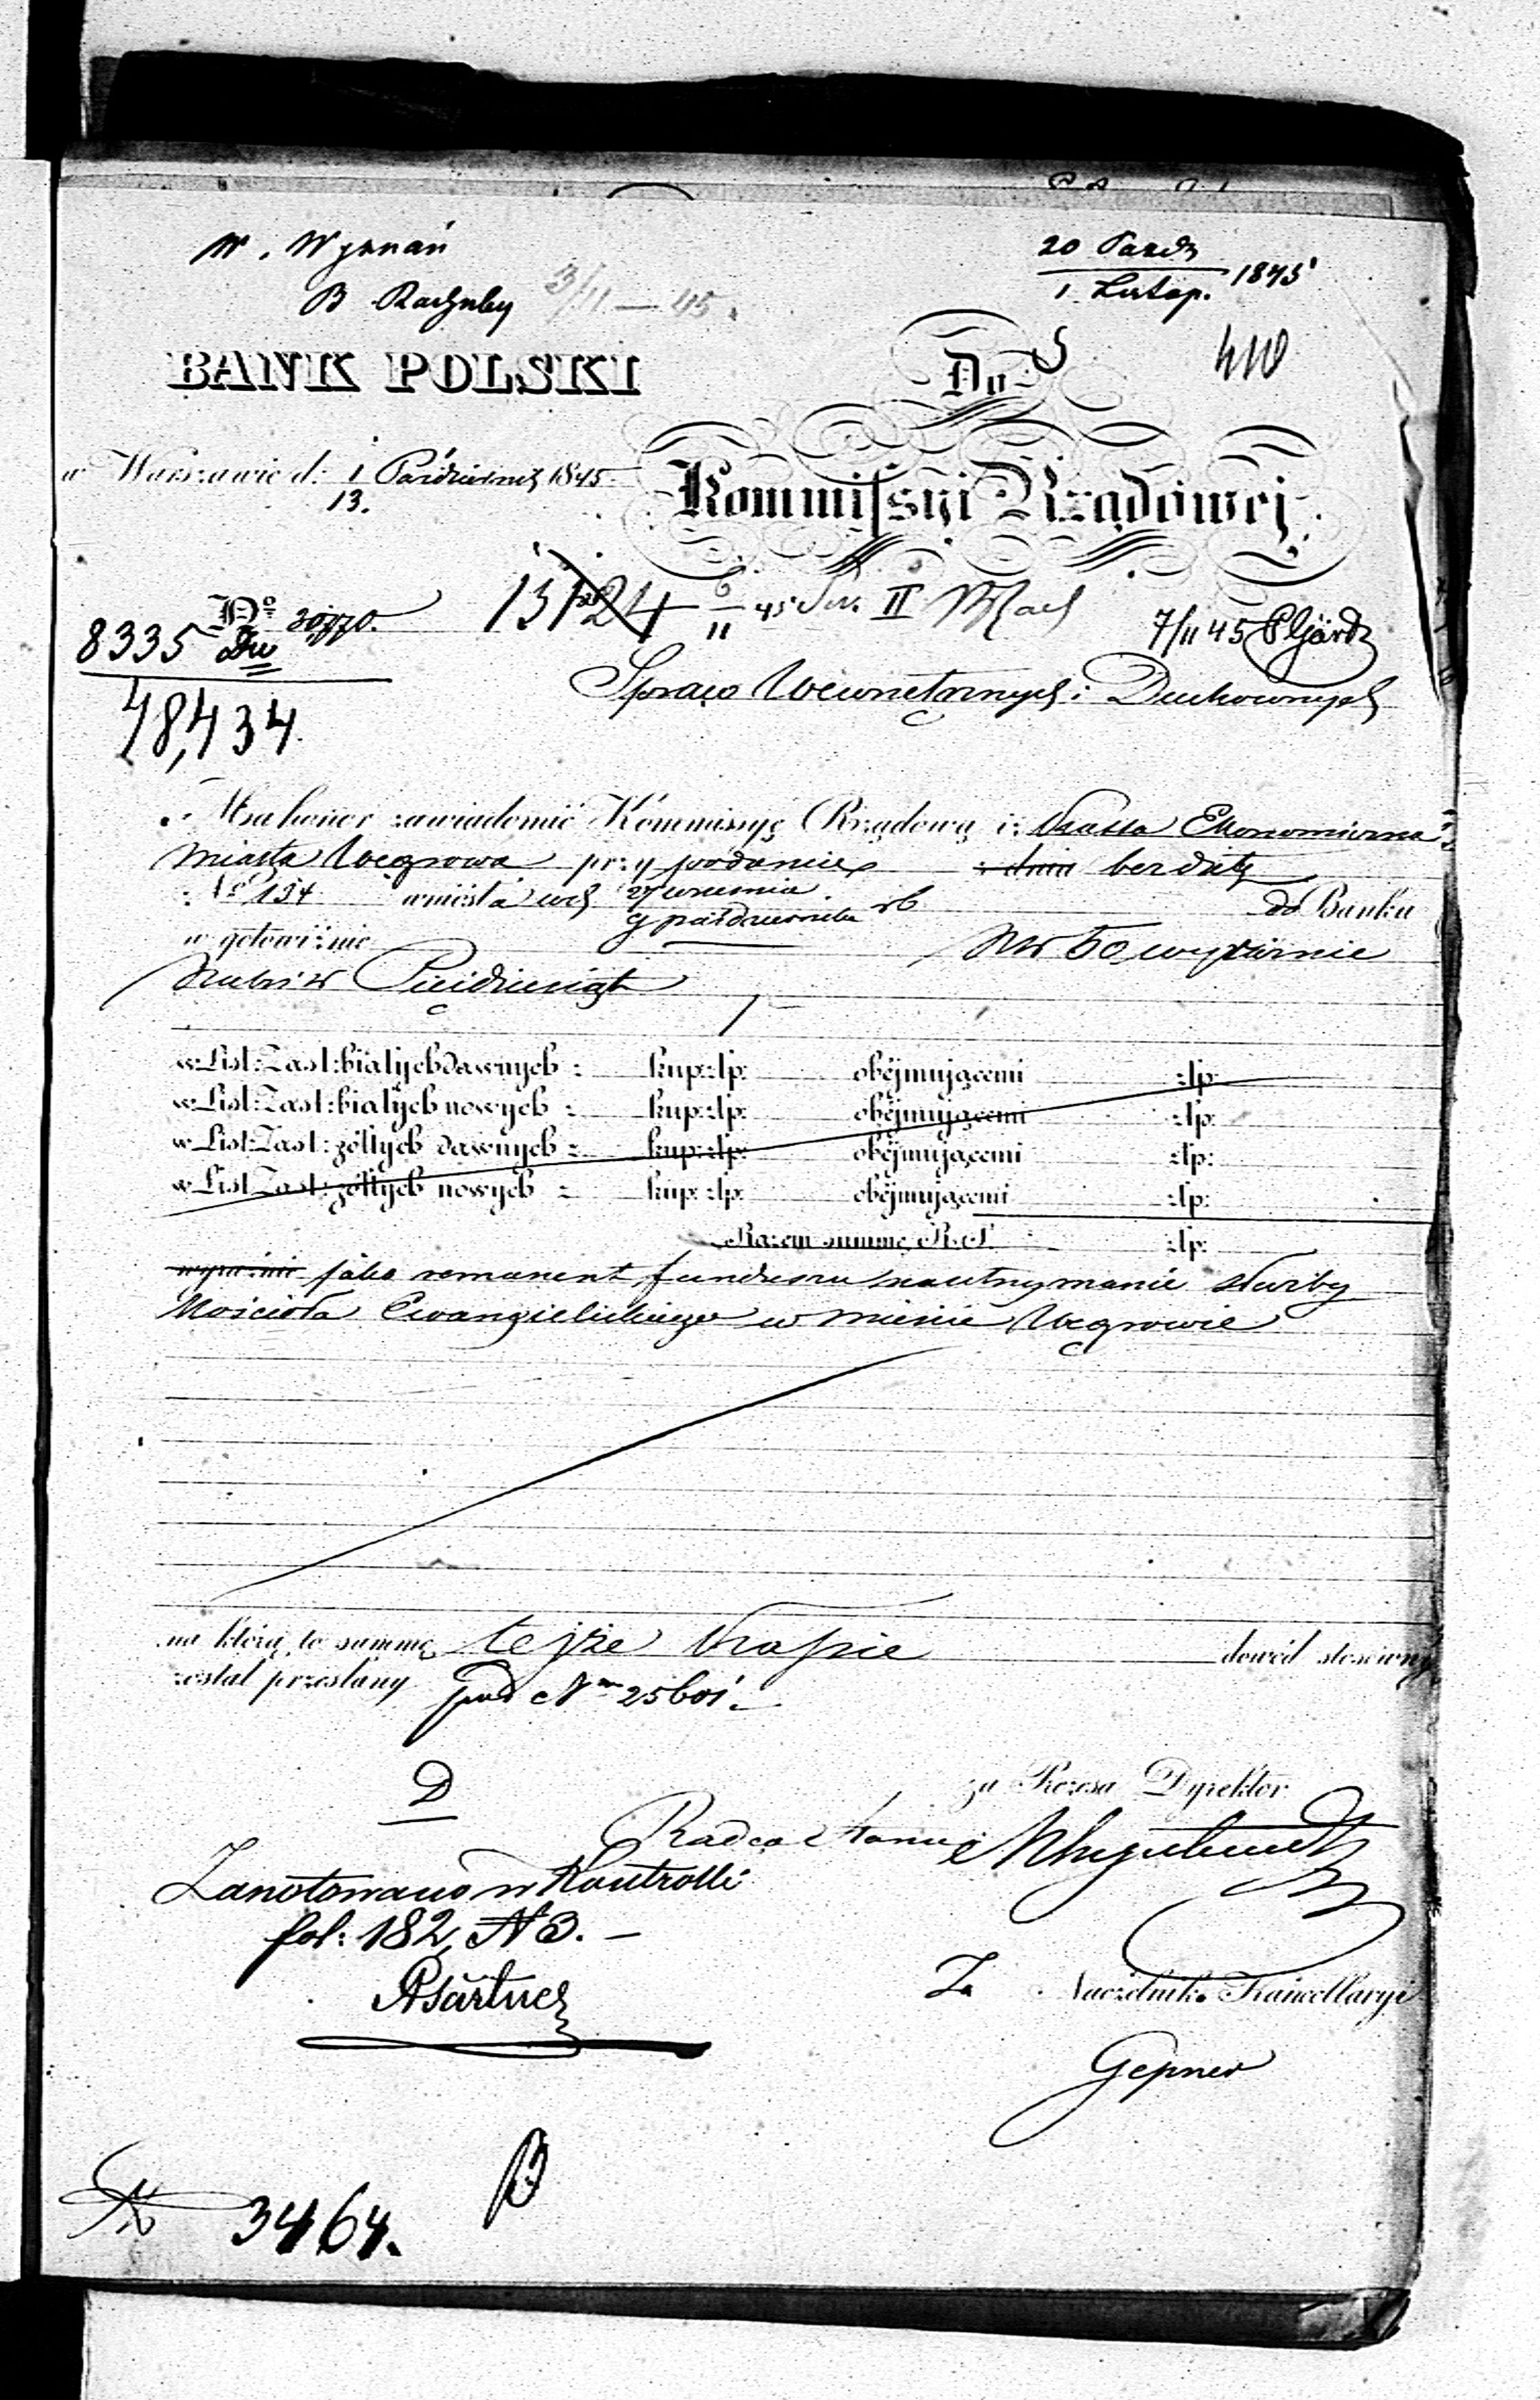 W. Wyznań
B Rachuby 3/11 — 45.
20 Paźdz
1 Listop. 1845
BANK POLSKI
Do
410
w Warszawie d: 1 Października 1845
13.
Kommissyi Rządowej
No
8335 Dw
48,434
13124 6/11 45 Sek. II
7/11 45
Spraw Wewnętrznych i Duchownych
Ma honor zawiadomić Kommissyę Rządową iż Kassa Ekonomiczna
Miasta Węgrowa przy podaniu z dnia bez daty
No 134 wniosła w d 27 września
9 października rb do Banku
w gotowiźnie Rsr 50, wyraźnie
Rubsr Pięćdziesiąt
w List: Zast: białych dawnych z kup: złp: obejmującemi złp:
w List: Zast: białych nowych z kup: złp: obejmującemi złp:
w List: Zast: żółtych dawnych z kup: złp: obejmującemi złp:
w List: Zast: żółtych nowych z kup: złp: obejmującemi złp:
Razem summę R.S. złp:
wyraźnie jako remanent funduszu na utrzymanie służby
Kościoła Ewangielickiego w mieście Węgrowie
na którą to summę tejże Kassie dowód stosowny
został przesłany pod Nm 25601
D
za Prezesa Dyrektor
Radca Stanu
Zanotowano w Kontrolli
fol: 182, N 3. —
Za Naczelnik Kancellaryi
Gepner
B
N 3464.